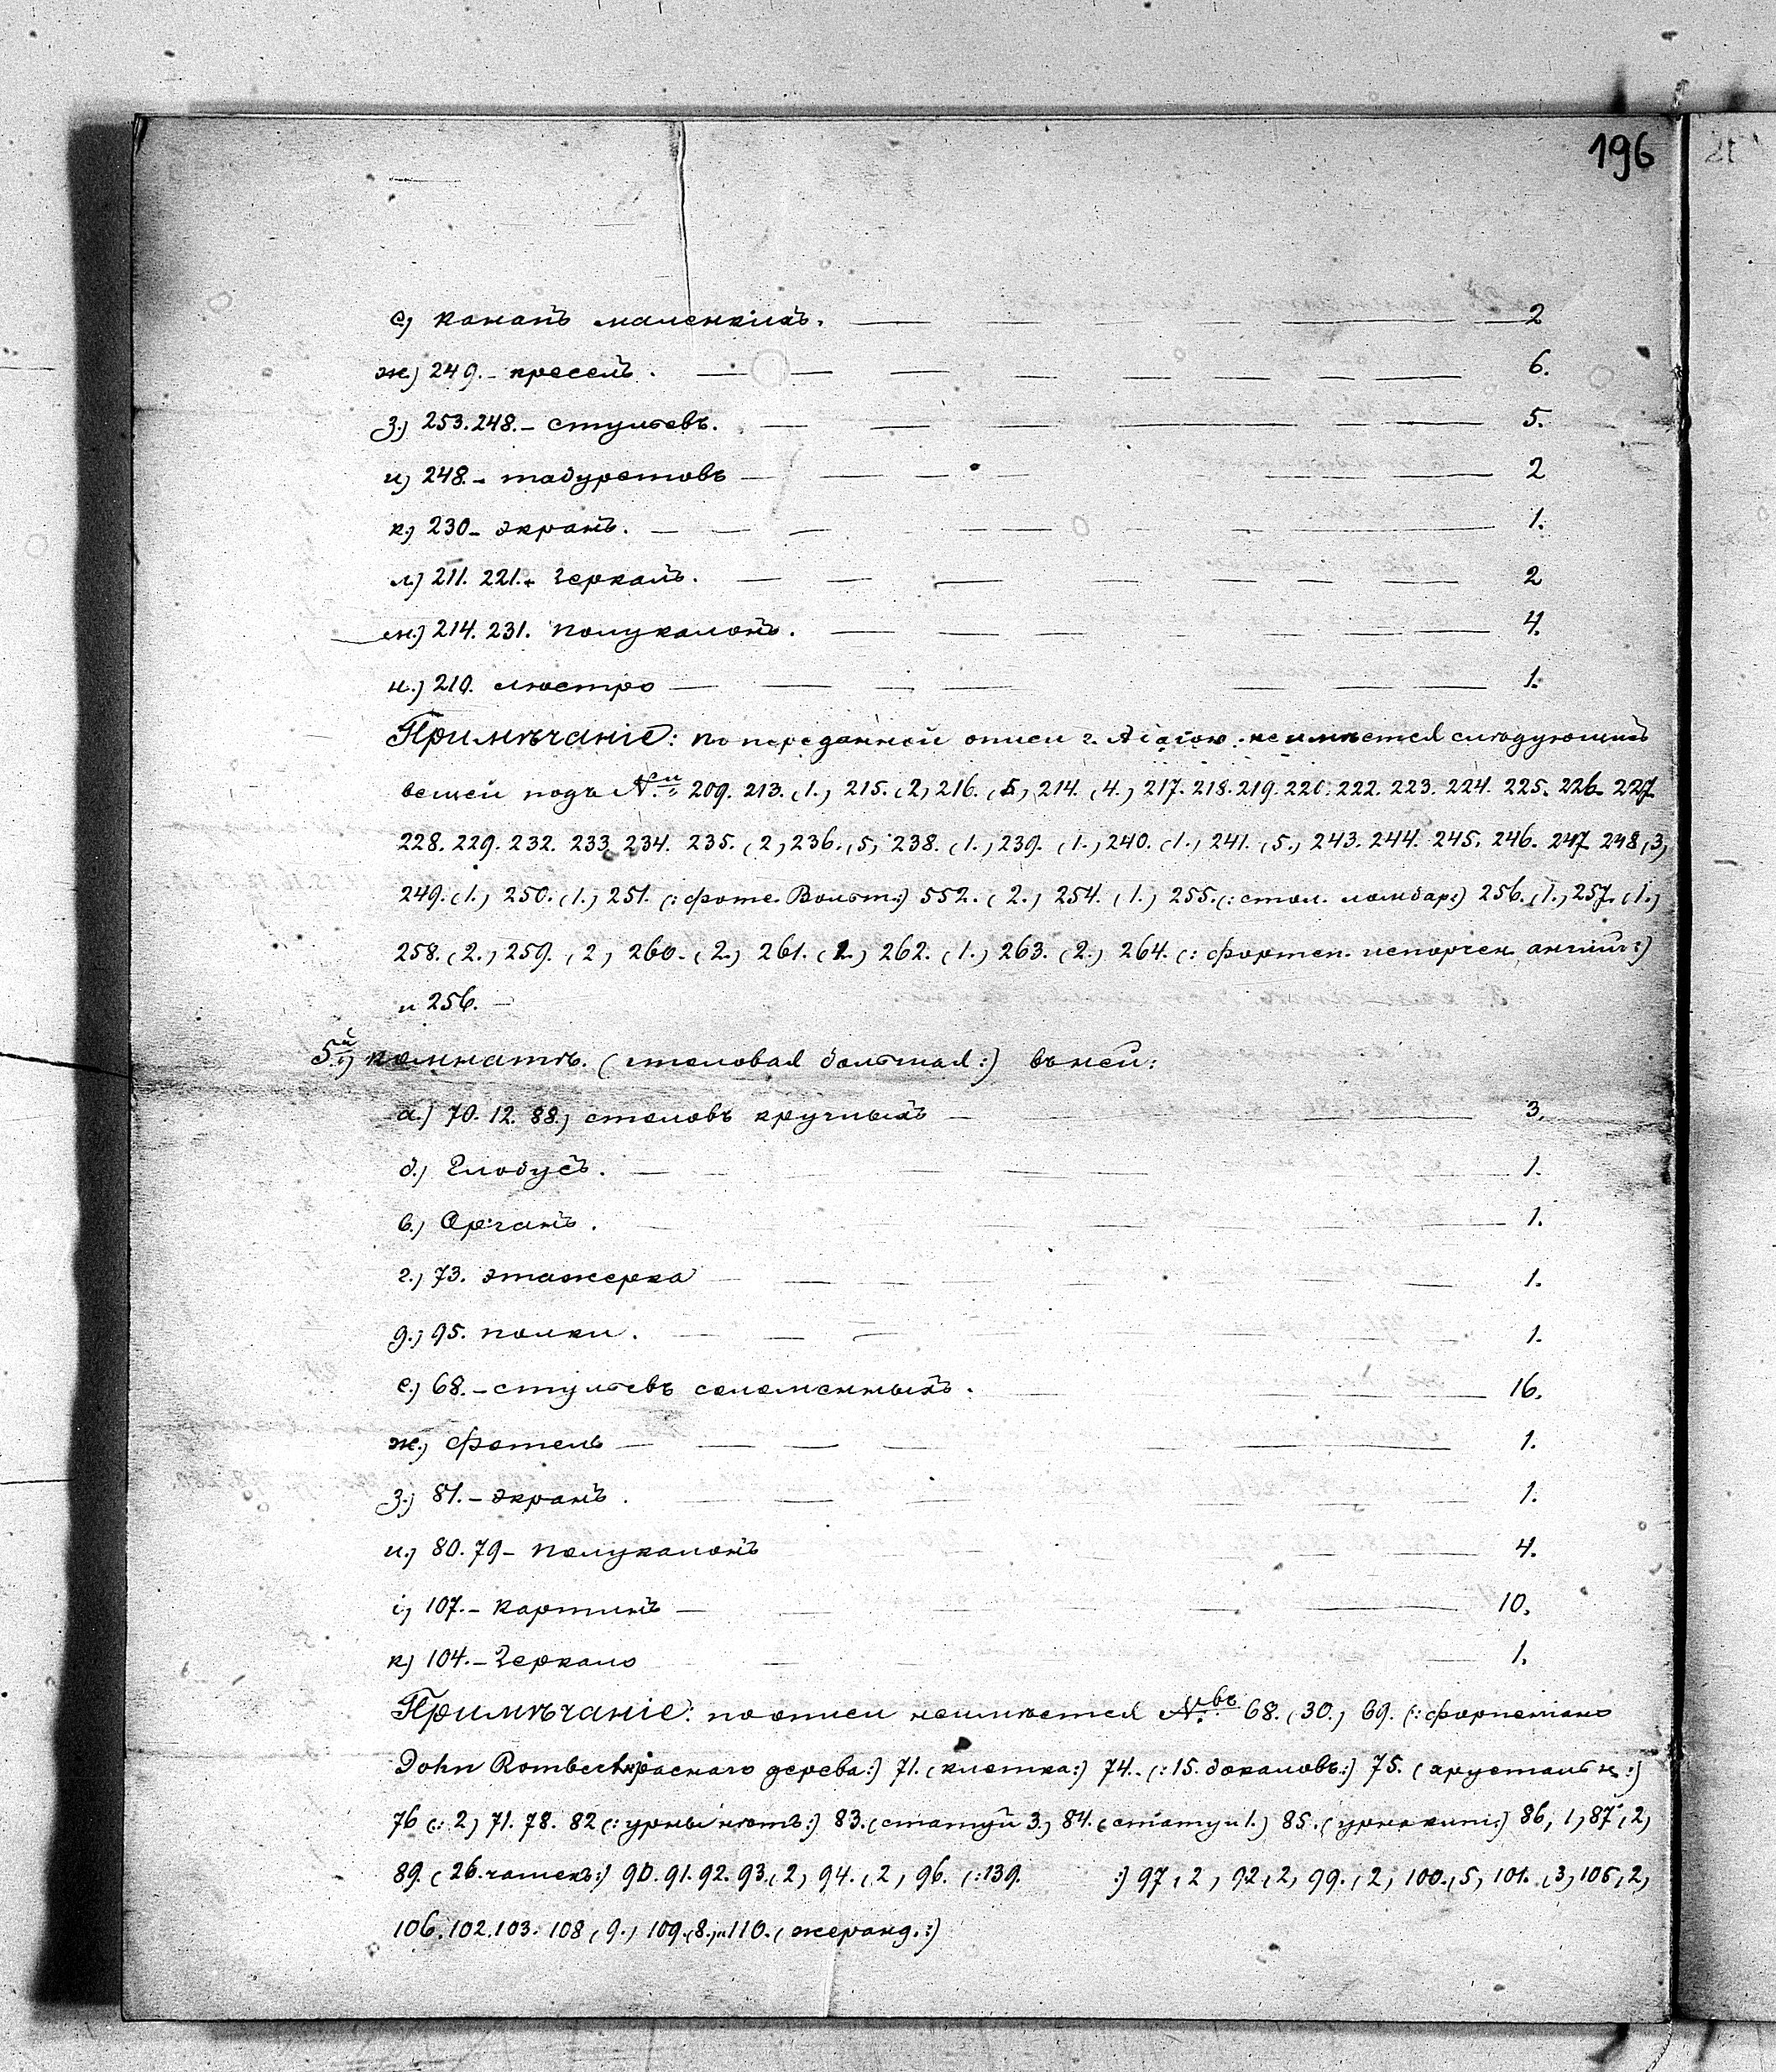 196
е) канапъ маленкихъ. — 2
ж.) 249. – креселъ. — 6.
з.) 253. 248. – стульевъ. — 5.
и) 248. – табуретовъ — 2
к.) 230 – экранъ. — 1.
л) 211. 221. – Зеркалъ. — 2
м.) 214. 231. полукалонъ. — 4.
н.) 210. люстро — 1.
Примѣчаніе: по переданной описи г. неимѣется слѣдующихъ
вещей подъ №ми 209. 213. (1.) 215. (2) 216. (5) 214. (4.) 217. 218. 219. 220. 222. 223. 224. 225. 226. 227
228. 229. 232. 233 234. 235. (2) 236. (5) 238. (1.) 239. (1.) 240. (1.) 241. (5.) 243. 244. 245. 246. 247 248 (3)
249. (1.) 250. (1.) 251. (: фоте. Вольт:) 552. (2.) 254. (1.) 255. (: стол. ломбар:) 256. (1.) 257. (1.)
258. (2.) 259. (2) 260. (2.) 261. (2.) 262. (1.) 263. (2.) 264. (: фортеп. испорчен. англий:)
и 256. –
5.й) комнатѣ. (столовая большая:) въ ней:
а.) 70. 12. 88.) столовъ круглыхъ — 3.
б.) Глобусъ. — 1.
в.) Органъ. — 1.
г.) 73. этажерка — 1.
д.) 95. полки. — 1.
е.) 68. – стульевъ соломенныхъ. — 16.
ж.) фотель — 1.
з.) 81. – экранъ. — 1.
и.) 80. 79 – полукалонъ — 4.
і) 107. – картинъ — 10.
к) 104. – Зеркало — 1.
Примѣчаніе: по описи неимѣется №въ 68. (30.) 69. (: форпетіано
John красного дерева:) 71. (клетка:) 74. (: 15. бокаловъ:) 75. (хрустальн:)
76 (: 2) 71. 78. 82 (: урны нѣтъ:) 83. (статуй 3.) 84. (статуи 1.) 85. 86, 1) 87 (2)
89. (26. чашекъ:) 90. 91. 92. 93. (2) 94. (2) 96. (: 139. :) 97 (2) 92 (2) 99. (2) 100. (5) 101. (3) 105 (2)
106. 102. 103. 108 (9.) 109. (8.) и 110. (жеранд.:)